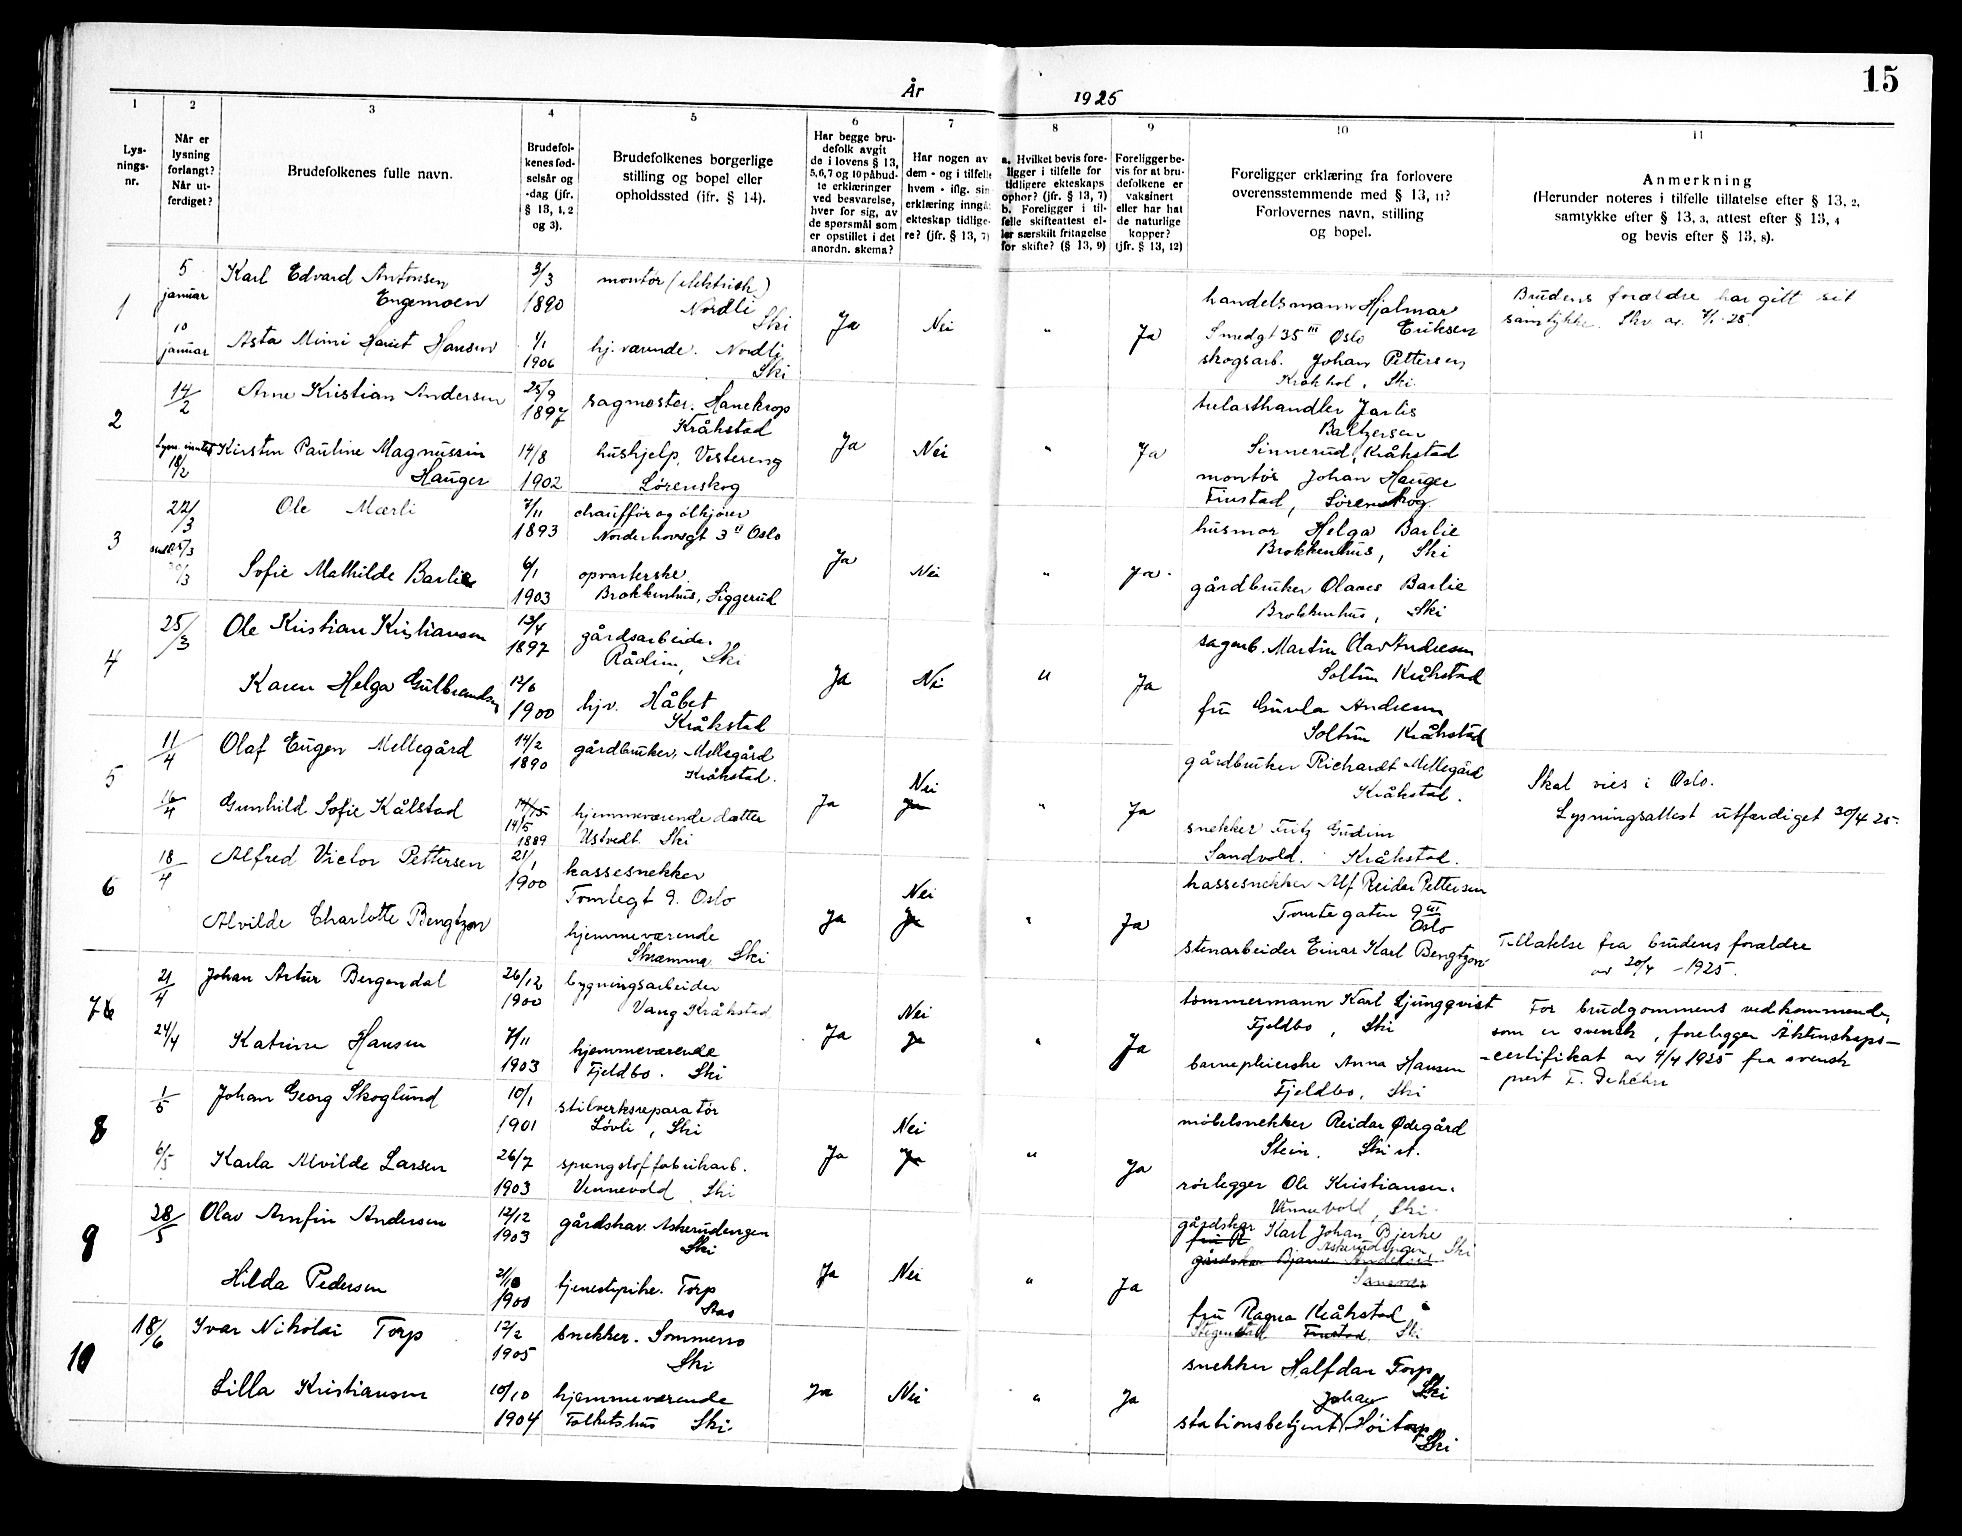 År 1925
15
1
2
3
4
5
6
7
8
9
10
11
Lys-
nings-
nr.
Når er
lysning
forlangt?
Når ut-
ferdiget?
Brudefolkenes fulle navn.
Brudefol-
kenes fød-
selsår og
-dag (jfr.
§ 13, 1, 2
og 3).
Brudefolkenes borgerlige
stilling og bopel eller
opholdssted (jfr. § 14).
Har begge bru-
defolk avgit
de i lovens § 13,
5, 6, 7 og 10 påbud-
te erklæringer
ved besvarelse,
hver for sig, av
de spørsmål som
er opstillet i det
anordn. skema?
Har nogen av
dem - og i tilfelle
hvem - iflg. sin
erklæring inngå
ekteskap tidlige-
re? (jfr. § 13, 7)
a. Hvilket bevis fore-
ligger i tilfelle for
tidligere ekteskaps
ophor? (jfr. § 13, 7)
b. Foreligger i til-
felle skifteattest el-
ler særskilt fritagelse
for skifte? (§ 13, 9)
Foreligger be-
vis for at bru-
defolkene er
vaksinert
eller har hat
de naturlige
kopper?
(jfr. § 13, 12)
Foreligger erklæring fra forlovere
overensstemmende med § 13, 11?
Forlovernes navn, stilling
og bopel.
Anmerkning
(Herunder noteres i tilfelle tillatelse efter § 13, 2,
samtykke efter § 13, 3, attest efter § 13, 4
og bevis efter § 13, 8).
1
5 januar
10 januar
Karl Edvard Antonsen
Engemoen
Asta Mimi Hariet Hansen
9/3
1890
1/1
1906
montør (elektrisk)
Nordli
Ski
hj. værende. Nordli
Ski
Ja
Nei
"
Ja
handelsmann Hjalmar
Eriksen
Smedgt 35 III Oslo
skogsarb. Johan Pettersen
Kråkhol, Ski.
Brudens forældre har gitt sit
samtykke. Skr. av 7/1-25.
2
14/2
18/2
Arne Kristian Andersen
Kirsten Pauline Magnussen
Hauger
25/9
1897
14/8
1902
sagmester. Hanekrop
Kråkstad
hushjelp, Vestereng
Lørenskog
Ja
Nei
"
Ja
trelasthandler Jarlis
Baltzersen
Sinnerud, Kråkstad
montør Johan Hauger
Finstad, Lørenskog.
3
22/3
Ole Mærli
Sofie Mathilde Barlie
7/11
1893
6/1
1903
chauffør og ølkjører
Norderhovsgt 3 II Oslo
opvarterske
Brokkenhus, Siggerud
Ja
Nei
"
Ja.
husmor Helga Barlie
Brokkenhus, Ski
gårdbruker Olaves Barlie
Brokkenhus, Ski
4
25/3
Ole Kristian Kristiansen
Karen Helga Gulbrandsen
13/4
1897
12/6
1900
gårdsarbeider
Rådim, Ski
hjv. Håbet
Kråkstad
Ja
Nei
"
Ja
sagarb. Martin Olav Andresen
Soltun Kråkstad
fru Gunla Andresen
Soltun Kråkstad
5
11/4
16/4
Olaf Eugen Mellegård
Gunhild Sofie Kålstad
14/2
1890
14/15
14/5
1889
gårdbruker, Mellegård
Kråkstad.
hjemmeværende datter
Ustvedt. Ski
Ja
Nei
Ja
"
Ja
gårdbruker Richardt Mellegård
Kråkstad.
snekker Fritz Gudim
Sandvold. Kråkstad.
Skal vies i Oslo.
Lysningsattest utfærdiget 30/4 25.
6
18/4
Alfred Victor Pettersen
Alvilde Charlotte Bengtzon
21/1
1900
kassesnekker
Tomtegt 9. Oslo
hjemmeværende
Skramma Ski
Ja
Nei
Ja
"
Ja
kassesnekker Alf Reidar Pettersen
Tomtegaten 9 III
Oslo
stenarbeider Einar Karl Bengtzon
Tillatelse fra brudens forældre
av 20/4 - 1925.
7
21/4
24/4
Johan Artur Bergendal
Katrine Hansen
26/12
1900
7/11
1903
bygningsarbeider
Vang Kråkstad
hjemmeværende
Fjeldbo. Ski
Ja
Nei
Ja
"
Ja
tømmermann Karl Ljungqvist
Fjeldbo, Ski
barnepleierske Anna Hansen
Fjeldbo, Ski
For brudgommens vedkommende,
som er svensk, foreligger Äktenskaps-
-certifikat av 4/4 1925 fra svensk
prest F. Dehéhn
8
1/5
6/5
Johan Georg Skoglund
Karla Alvilde Larsen
10/1
1901
26/7
1903
stilverksreparatør
Løvli, Ski
sprengstoffabrikarb.
Vennevold Ski
Ja
Nei
Ja
"
Ja
møbelsnekker Reidar Ødegård
Stein. Ski st.
rørlegger Ole Kristiansen.
Vennevold, Ski.
9
28/5
Olav Arnfin Andersen
Hilda Pedersen
12/12
1903
21/10
1900
gårdskar. Askerudengen
Ski
tjenestepike. Torp
Aas
Ja
Nei
"
Ja
gårdskar Karl Johan Bjerke
Askerudengen, Ski
fru R
gårdskar Bjarne Andersen
fru Ragna Kråkstad
Finstad. Ski
10
18/6
Ivar Nikolai Torp
Lilla Kristiansen
12/2
1905
10/10
1904
snekker. Sommerro
Ski
hjemmeværende
Folketshus Ski.
Ja
Nei
"
Ja
snekker Halfdan Torp
Ski
Johan
stationsbetjent Høitorp
Ski